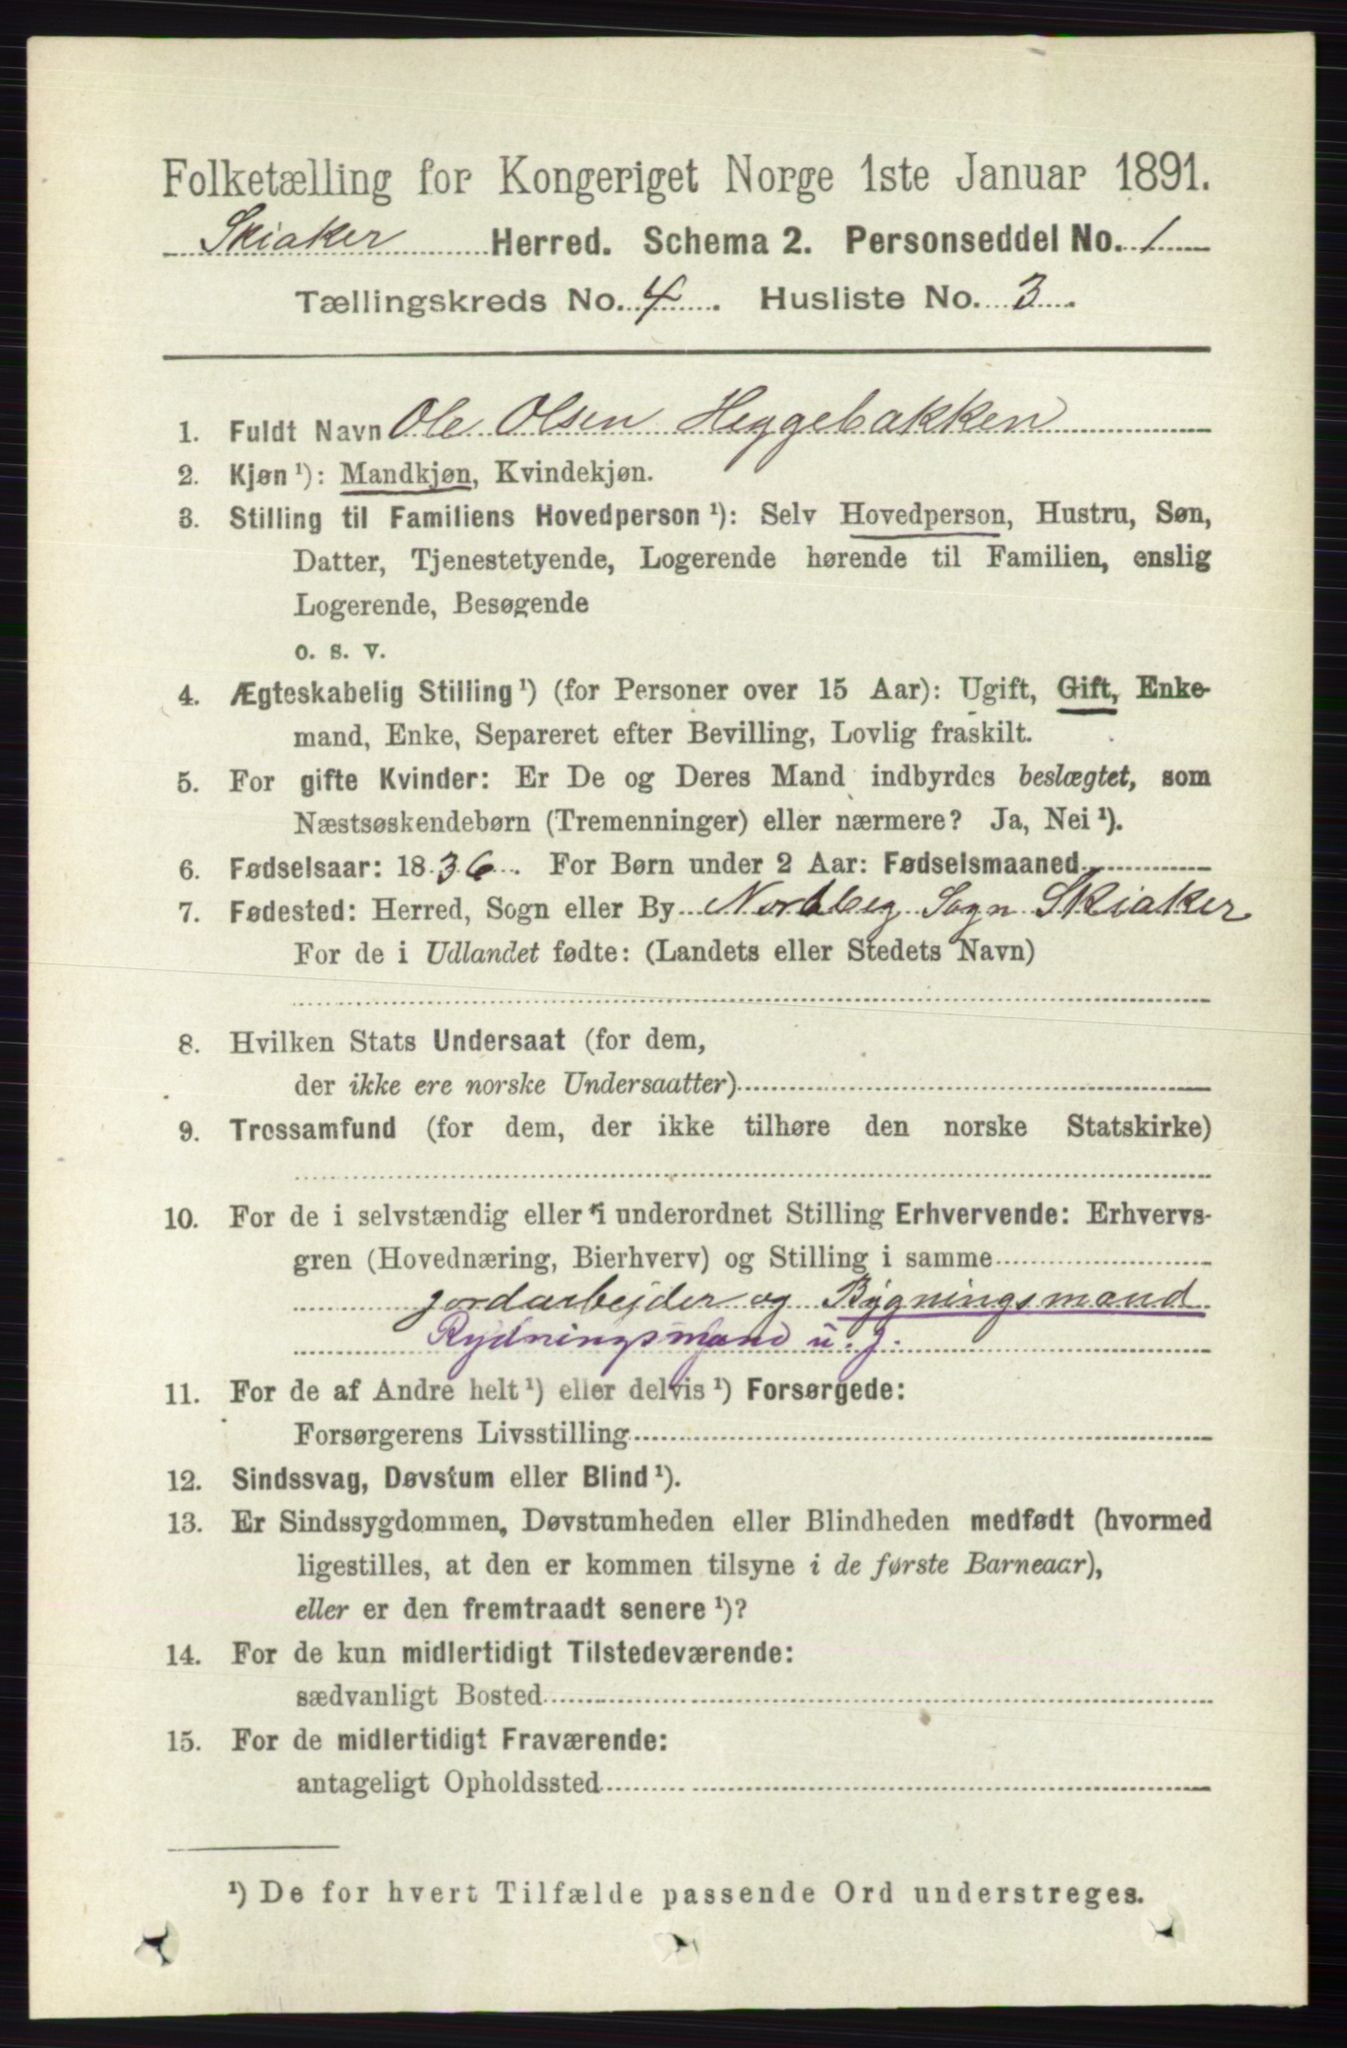 Folketælling for Kongeriget Norge 1ste Januar 1891.
Skiaker Herred. Schema 2. Personseddel No. 1
Tællingskreds No. 4. Husliste No. 3.
1. Fuldt Navn Ole Olsen Heggebakken
2. Kjøn ¹): Mandkjøn, Kvindekjøn.
3. Stilling til Familiens Hovedperson ¹): Selv Hovedperson, Hustru, Søn,
Datter, Tjenestetyende, Logerende hørende til Familien, enslig
Logerende, Besøgende
o. s. v.
4. Ægteskabelig Stilling ¹) (for Personer over 15 Aar): Ugift, Gift, Enke-
mand, Enke, Separeret efter Bevilling, Lovlig fraskilt.
5. For gifte Kvinder: Er De og Deres Mand indbyrdes beslægtet, som
Næstsøskendebørn (Tremenninger) eller nærmere? Ja, Nei ¹).
6. Fødselsaar: 1836. For Børn under 2 Aar: Fødselsmaaned
7. Fødested: Herred, Sogn eller By Nordbeg Sogn Skiaker
For de i Udlandet fødte: (Landets eller Stedets Navn)
8. Hvilken Stats Undersaat (for dem,
der ikke ere norske Undersaatter)
9. Trossamfund (for dem, der ikke tilhøre den norske Statskirke)
10. For de i selvstændig eller i underordnet Stilling Erhvervende: Erhvervs-
gren (Hovednæring, Bierhverv) og Stilling i samme
jordarbejder og Bygningsmand
Rydningsmand u. j.
11. For de af Andre helt ¹) eller delvis ¹) Forsørgede:
Forsørgerens Livsstilling
12. Sindssvag, Døvstum eller Blind ¹).
13. Er Sindssygdommen, Døvstumheden eller Blindheden medfødt (hvormed
ligestilles, at den er kommen tilsyne i de første Barneaar),
eller er den fremtraadt senere ¹)?
14. For de kun midlertidigt Tilstedeværende:
sædvanligt Bosted
15. For de midlertidigt Fraværende:
antageligt Opholdssted
¹) De for hvert Tilfælde passende Ord understreges.